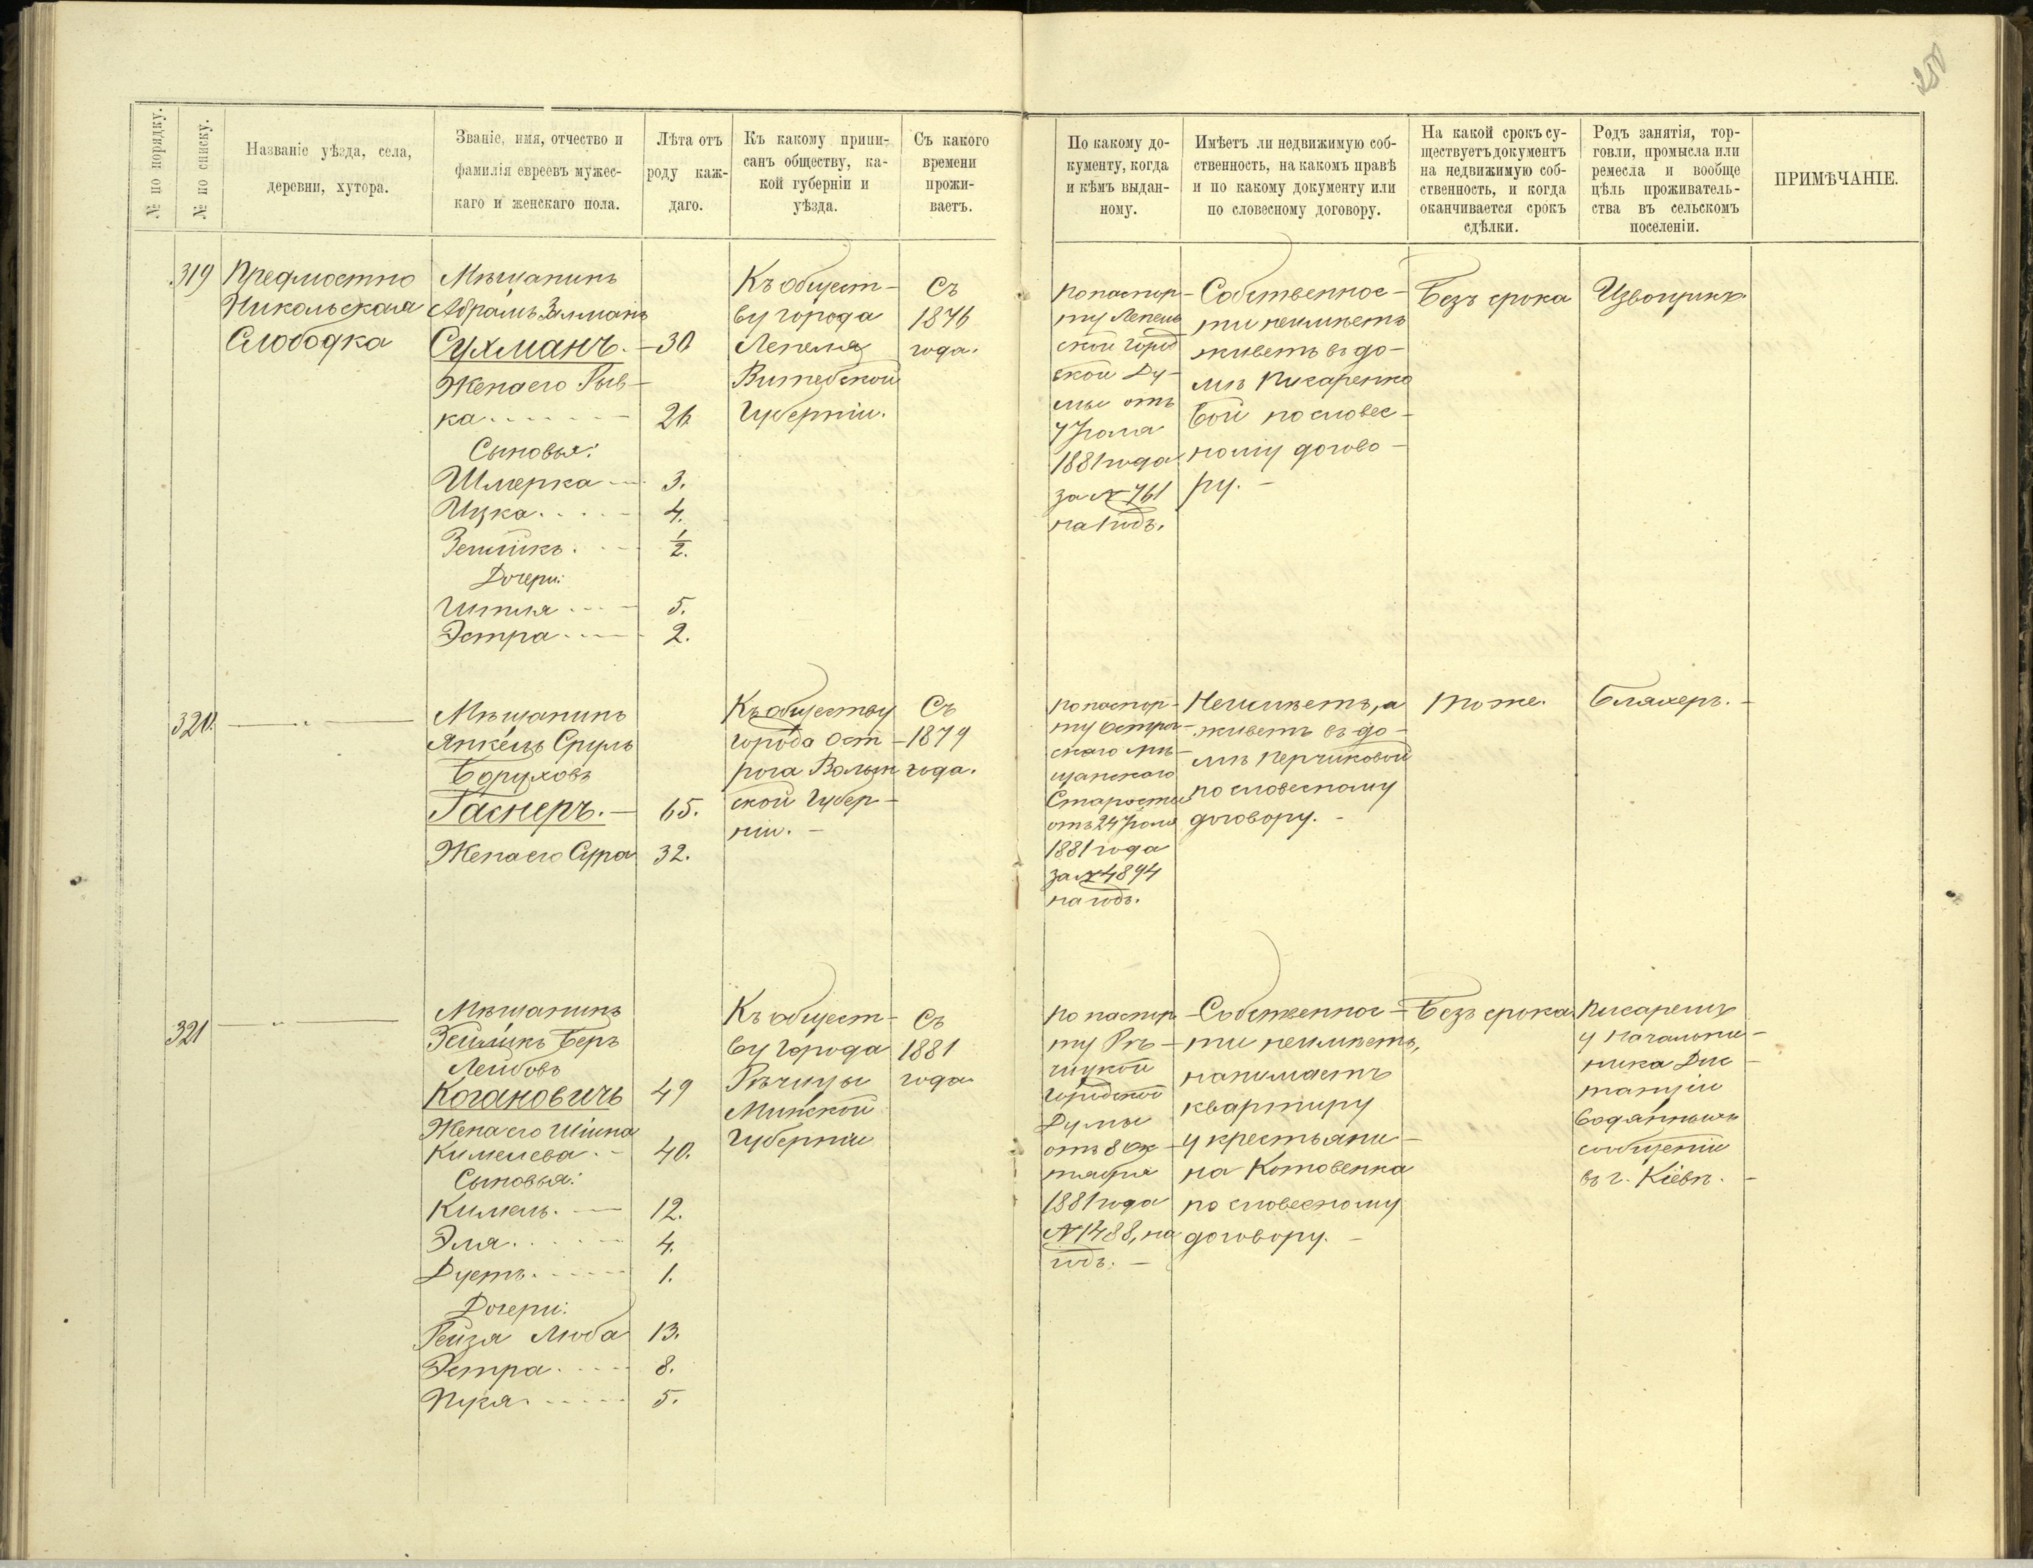 250
№ по порядку.
№ по списку.
Названіе уѣзда, села,
деревни, хутора.
Званіе, имя, отчество и
фамилія евреевъ мужес-
каго и женскаго пола.
Лѣта отъ
роду каж-
даго.
Къ какому припи-
санъ обществу, ка-
кой губерніи и
уѣзда.
Съ какого
времени
прожи-
ваетъ.
По какому до-
кументу, когда
и кѣмъ выдан-
ному.
Имѣетъ ли недвижимую соб-
ственность, на какомъ правѣ
и по какому документу или
по словесному договору.
На какой срокъ су-
ществуетъ документъ
на недвижимую соб-
ственность, и когда
оканчивается срокъ
сдѣлки.
Родъ занятія, тор-
говли, промысла или
ремесла и вообще
цѣль проживатель-
ства въ сельскомъ
поселеніи.
ПРИМѢЧАНІЕ.
319
Предмостно
Никольская
Слободка
Мѣщанинъ
Абрамъ Залманъ
Сухманъ. — 30
Жена его Рыв-
ка 26
Сыновья:
Шмерка 3.
Ицка 4.
Зеликъ 1/2.
Дочери:
Гитля 5.
Эстра 2.
Къ общест-
ву города
Лепеля
Витебской
Губерніи.
Съ
1876
года.
По паспор-
ту Лепель
ской Город
ской Ду-
мы отъ
7 Іюля
1881 года
за № 761
на 1 годъ.
Собственнос-
ти неимѣетъ
живетъ въ до-
мѣ Писаренко
вой по словес-
ному догово-
ру. -
Безъ срока
Извощикъ
320.
Мѣщанинъ
Янкель Сруль
Боруховъ
Гаснеръ. — 65.
Жена его Сура 32.
Къ обществу
города Ост-
рога Волын
ской Губер-
ніи. -
Съ
1879
года.
По паспор-
ту Остро-
скаго мѣ-
щанскаго
Старосты
отъ 24 Іюля
1881 года
за № 4894
на годъ.
Неимѣетъ, а
живетъ въ до-
мѣ Перчиковой
по словесному
договору. -
Тоже.
Бляхеръ. -
321
Мѣщанинъ
Зеликъ Беръ
Лейбовъ
Когановичъ 49
Жена его Шіина
Кимелева 40.
Сыновья:
Кимель. 12.
Эля 4.
Дуетъ 1.
Дочери:
Гейзя Люба 13.
Эстра 8.
Пуя 5.
Къ общест-
ву города
Рѣчицы
Минской
Губерніи
Съ
1881
года
По паспор
ту Рѣ-
чицкой
Городской
Думы
отъ 8 Ок-
тября
1881 года
№ 1488, на
годъ. -
Собственнос-
ти неимѣетъ,
нанимаетъ
квартиру
у крестьяни-
на Котовенка
по словесному
договору. -
Безъ срока
Писаремъ
у начальни-
ника Дис-
танціи
водяныхъ
сообщеній
въ г. Кіевѣ. -